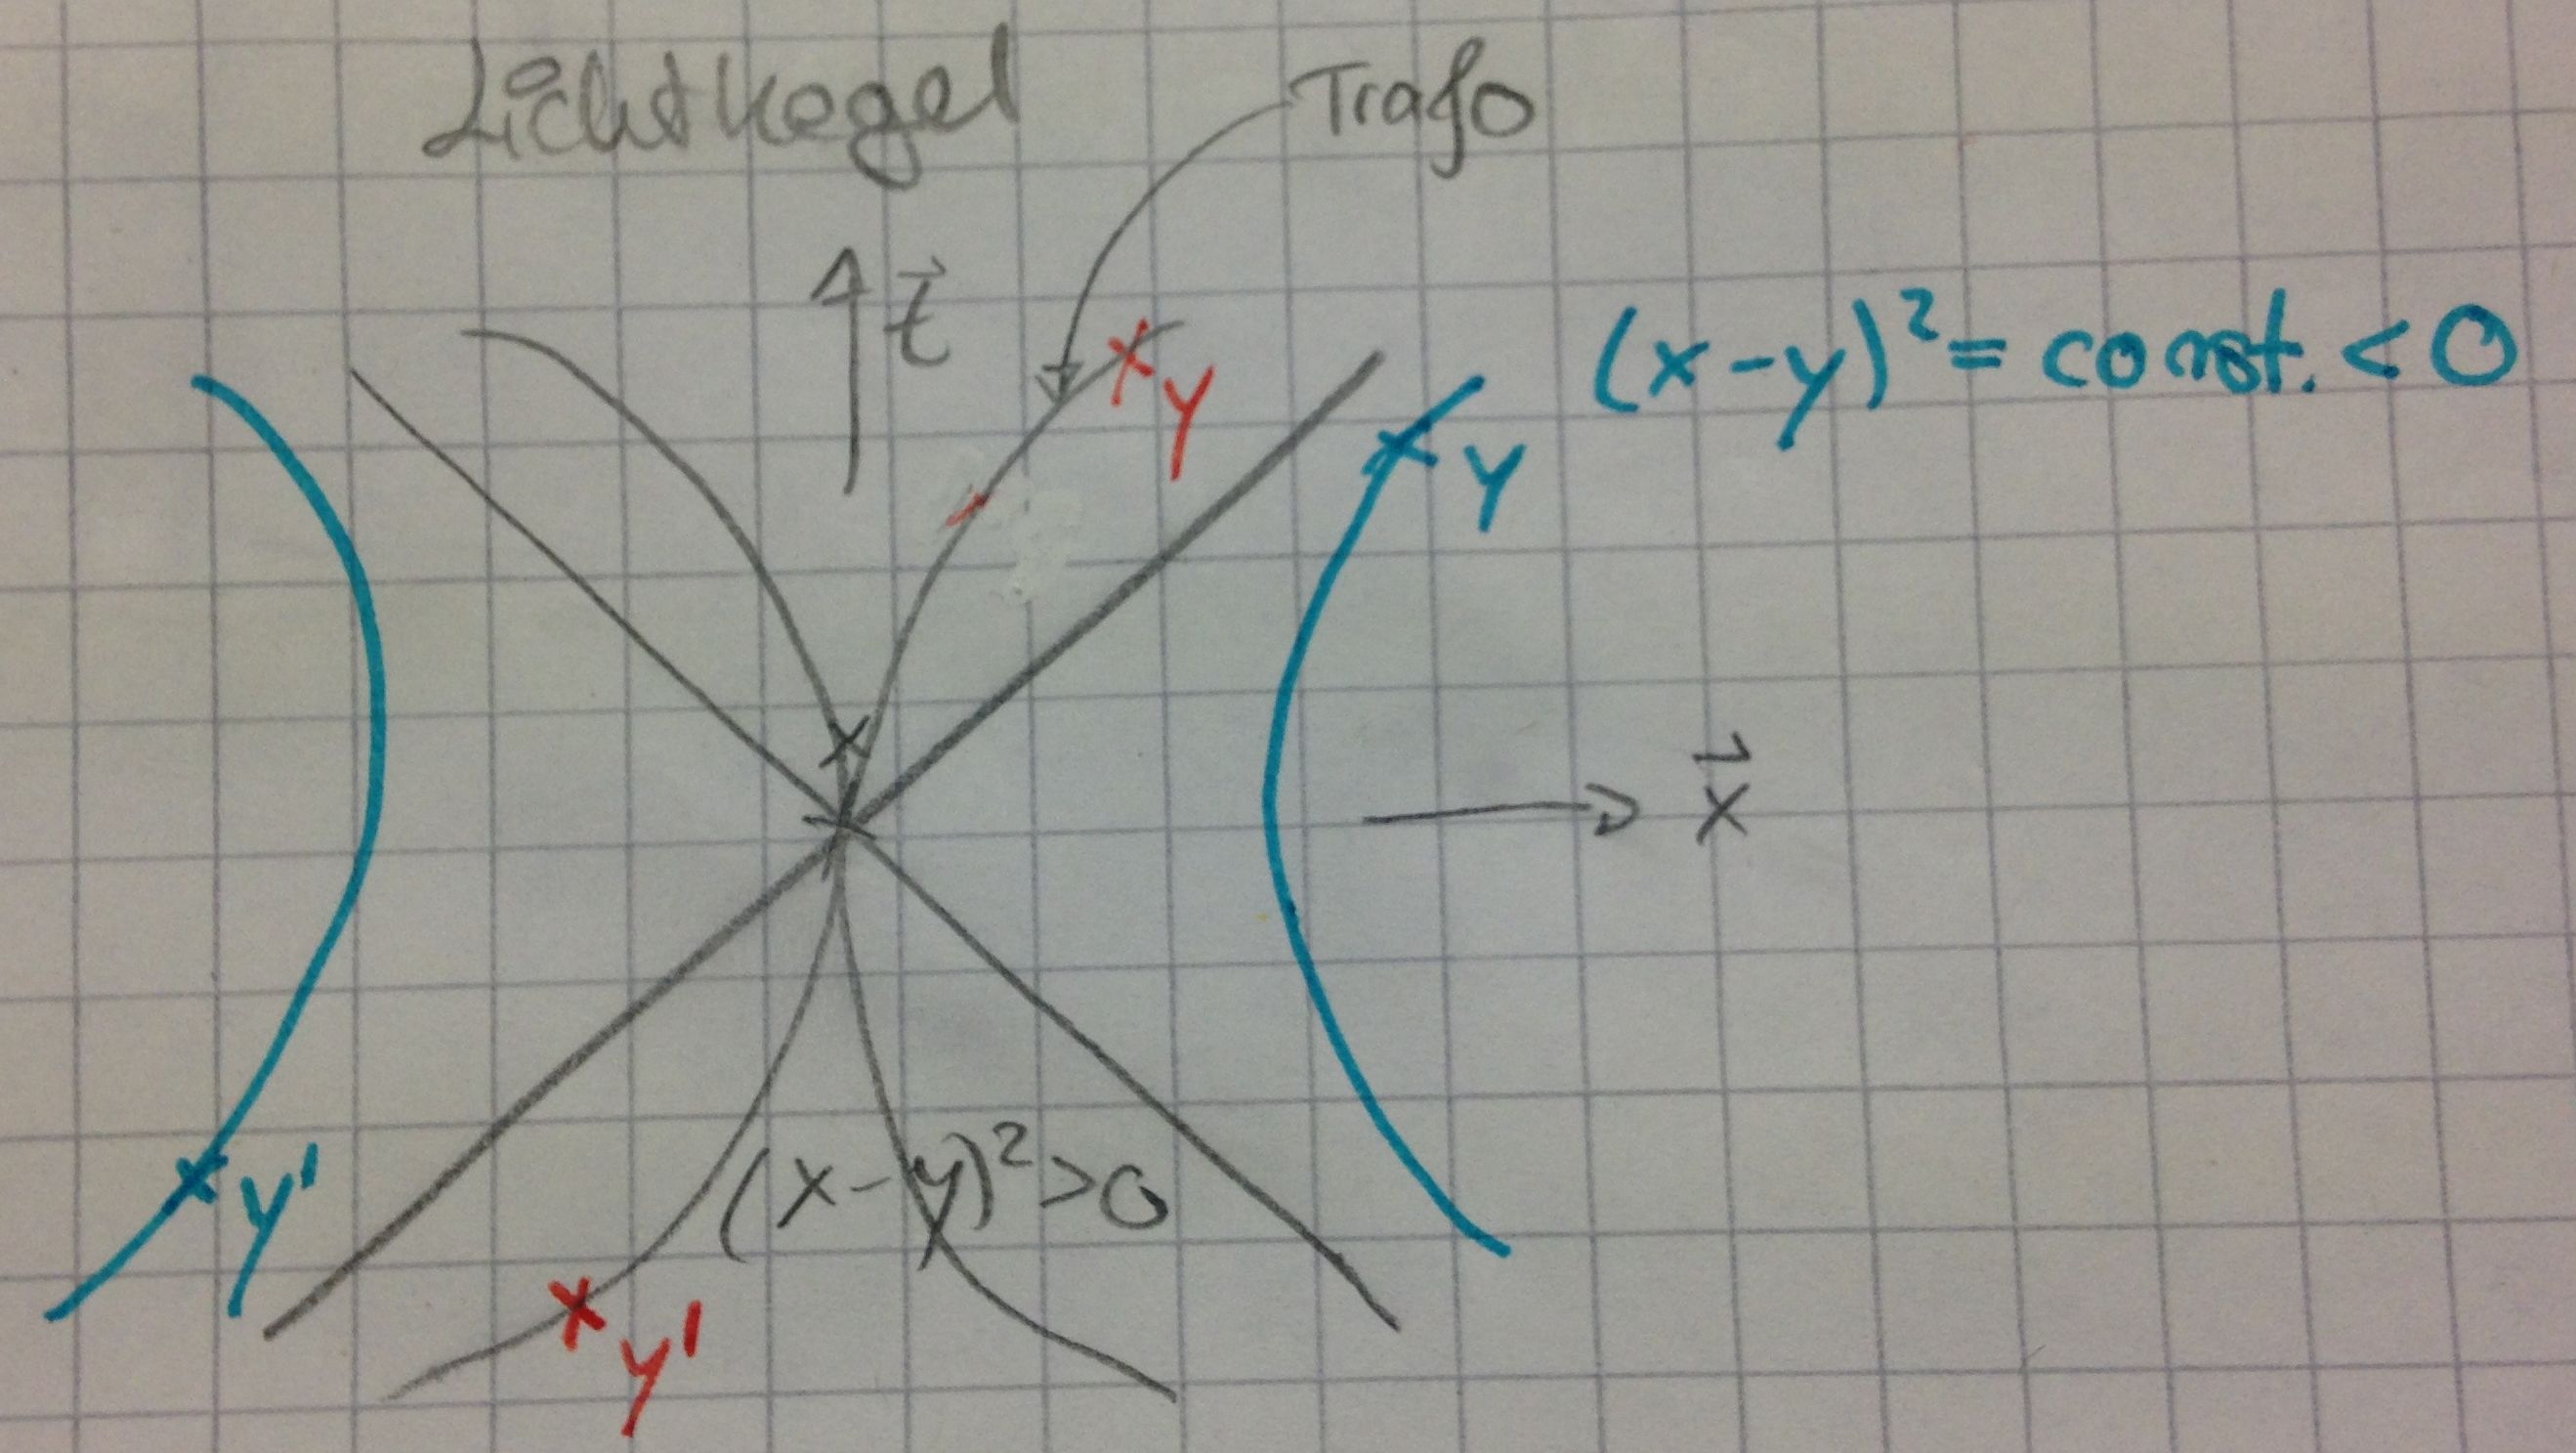 Lichtkegel
Trafo
t⃗
x y
(x-y)² = const. < 0
x y
x
x⃗
x y'
(x-y)²>0
x y'